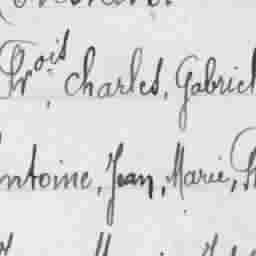 Frois, Charles, Gabriel
ntoine, Jean, Marie,